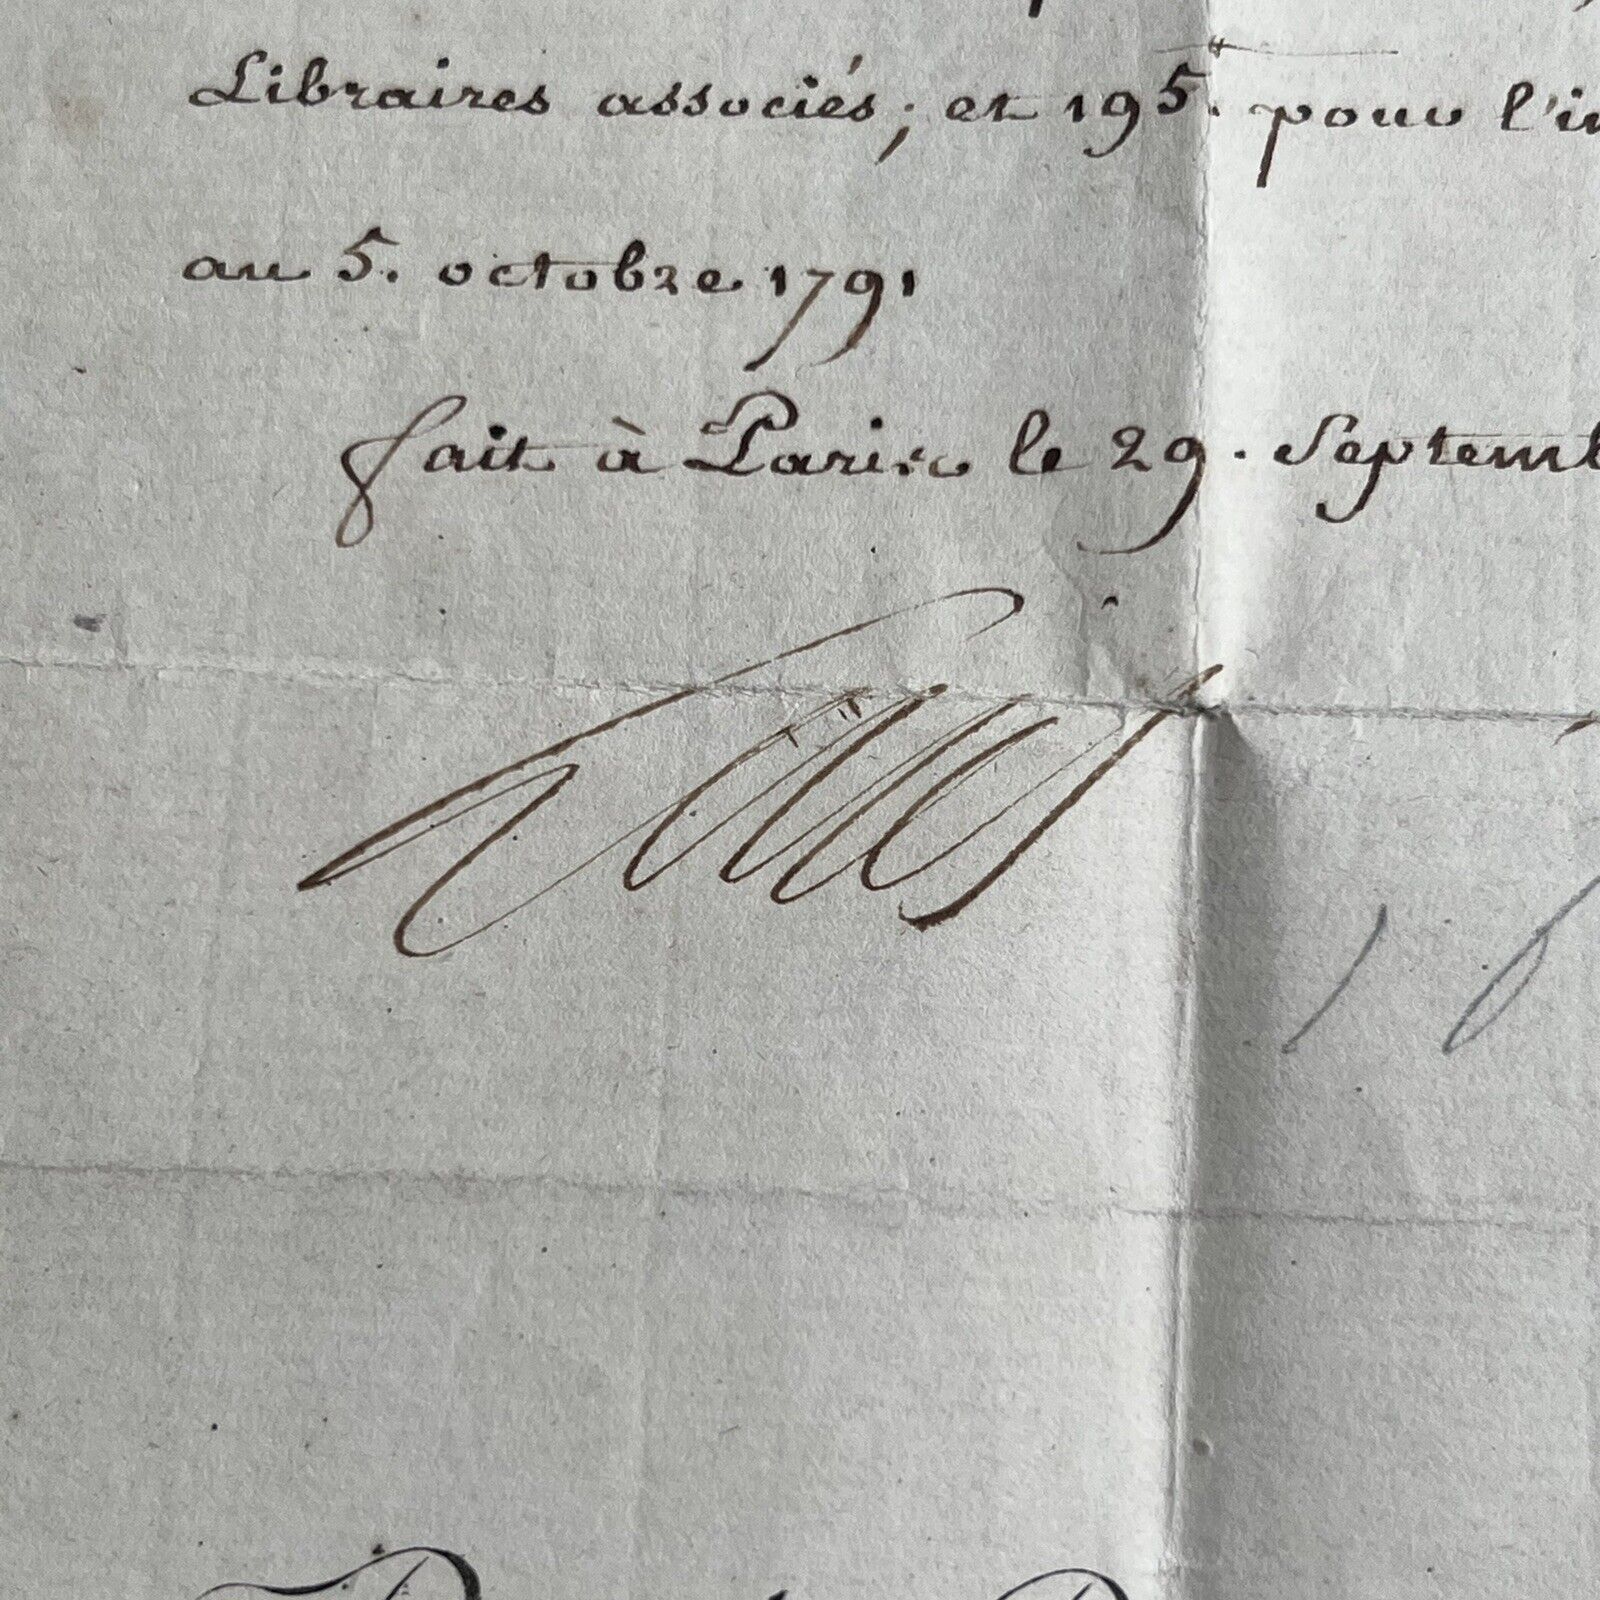 Libraires associés; et 195. pour l'in
au 5. octobre 1791
fait à Paris le 29. Septemb